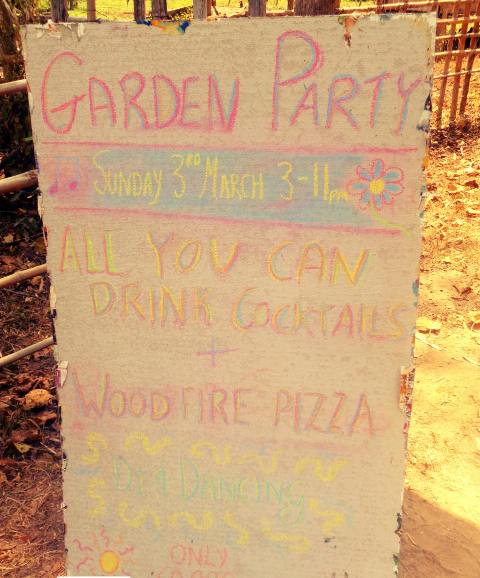 GARDEN PARTY
SUNDAY 3RD MARCH 3-11pm
ALL YOU CAN
DRINK COCKTAILS
+
WOODFIRE PIZZA
DJ & DANCING
ONLY